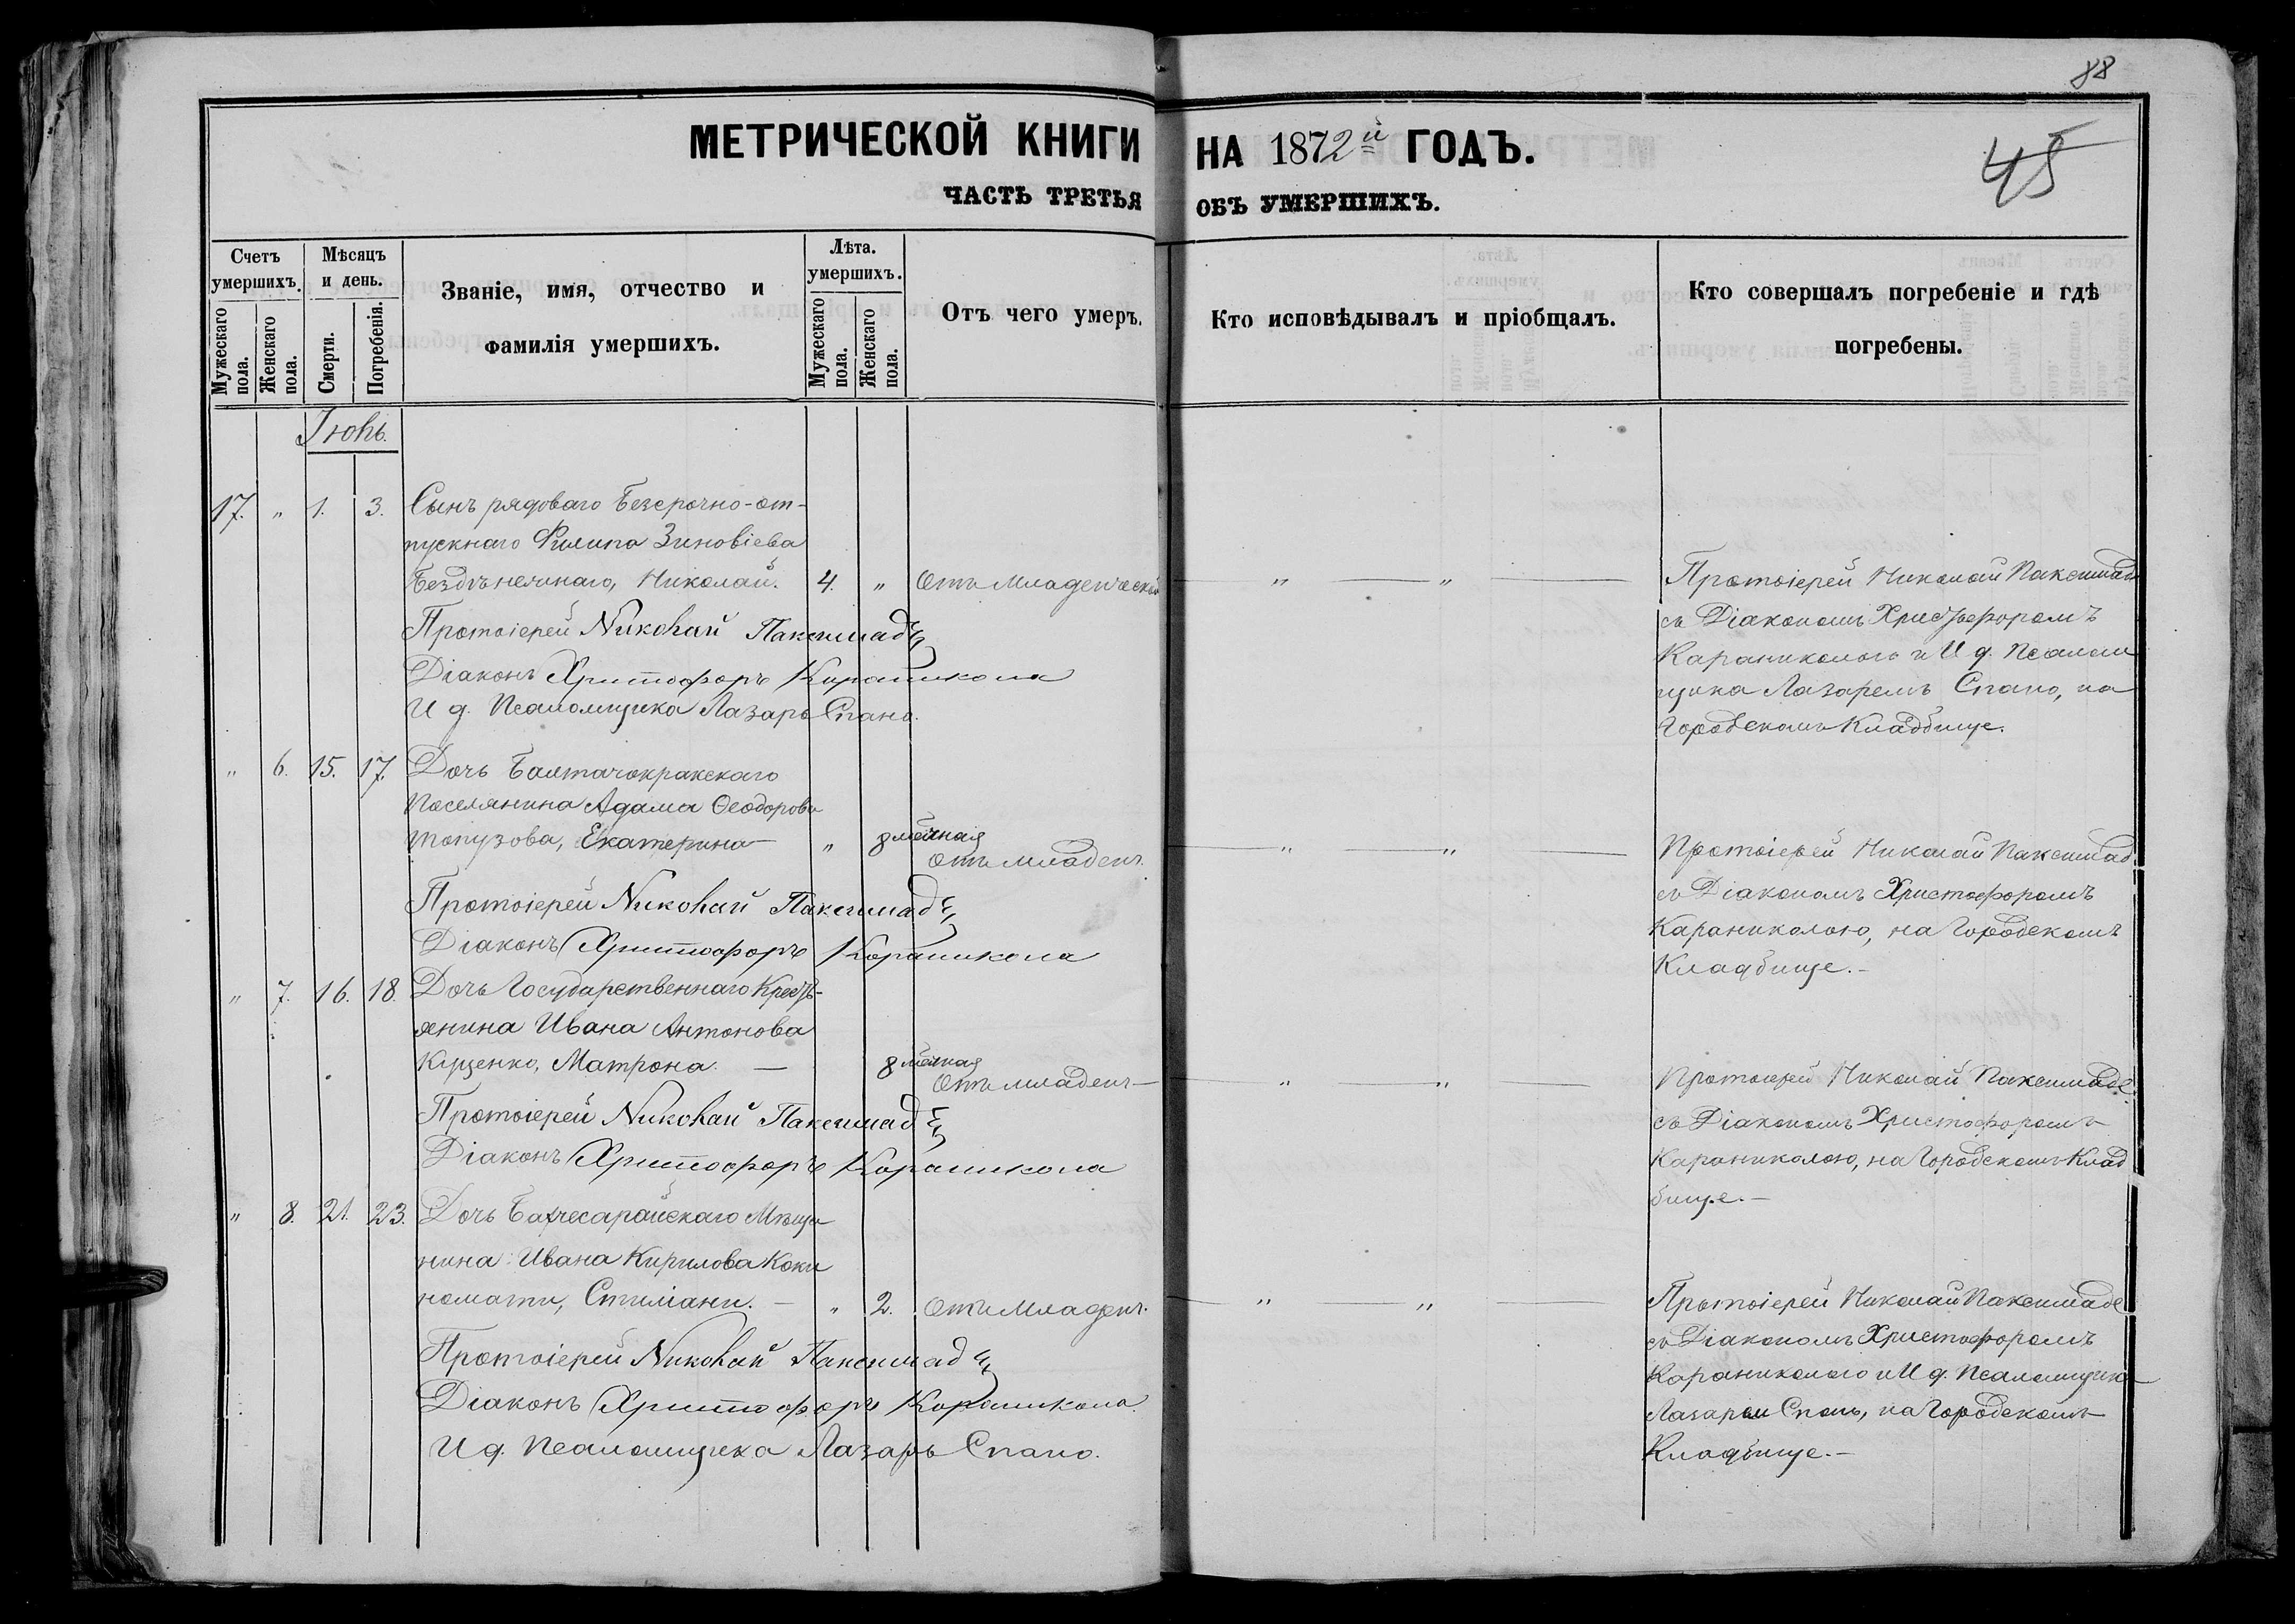 88
МЕТРИЧЕСКОЙ КНИГИ НА 1872й ГОДЪ.
45
ЧАСТЬ ТРЕТЬЯ ОБЪ УМЕРШИХЪ.
Счетъ умершихъ.
Мужескаго пола.
Женскаго пола.
Мѣсяцъ и день.
Смерти.
Погребенія.
Званіе, имя, отчество и
фамилія умершихъ.
Лѣта. умершихъ.
Мужескаго пола.
Женскаго пола.
Отъ чего умеръ.
Кто исповѣдывалъ и пріобщалъ.
Кто совершалъ погребеніе и гдѣ
погребены.
Іюнь.
17. " 1. 3. Сынъ рядоваго безсрочно-от-
пускнаго Филипа Зиновіева
Бездѣнежнаго, Николай. 4. " Отъ младенческой " "
Протоіерей Николай Паксимаде
Діаконъ Христофоръ Караникола
И д. Псаломщика Лазарь Спано.
Протоіерей Николай Паксимаде
съ Діакономъ Христофоромъ
Караниколою и И д. Псалом
щика Лазаремъ Спано, на
Городскомъ Кладбище.
" 6. 15. 17. Дочь Балтачокракскаго
поселянина Адама Ѳеодорова
Топузова, Екатерина " 8 мѣсячная
Отъ младенч. " "
Протоіерей Николай Паксимаде
Діаконъ Христофоръ Караникола
Протоіерей Николай Паксимад
съ Діакономъ Христофоромъ
Караниколою, на Городскомъ
Кладбище.-
" 7. 16. 18. Дочь Государственнаго Кресть-
янина Ивана Антонова
Кущенко, Матрона. — 8 мѣсячная
Отъ младенч— " "
Протоіерей Николай Паксимаде
Діаконъ Христофоръ Караникола
Протоіерей Николай Паксимаде
съ Діакономъ Христофоромъ
Караниколою, на Городскомъ Клад
бище.—
" 8. 21. 23. Дочь Бахчесарайскаго Мѣща
нина Ивана Кирилова Коки
номати, Стиліани. — " 2. Отъ младенч. " "
Протоіерей Николай Паксимаде
Діаконъ Христофоръ Караникола
И д. Псаломщика Лазарь Спано.
Протоіерей Николай Паксимаде
съ Діакономъ Христофоромъ
Караниколою и И д. Псаломщика
Лазарем Спано, на Городскомъ
Кладбище.—